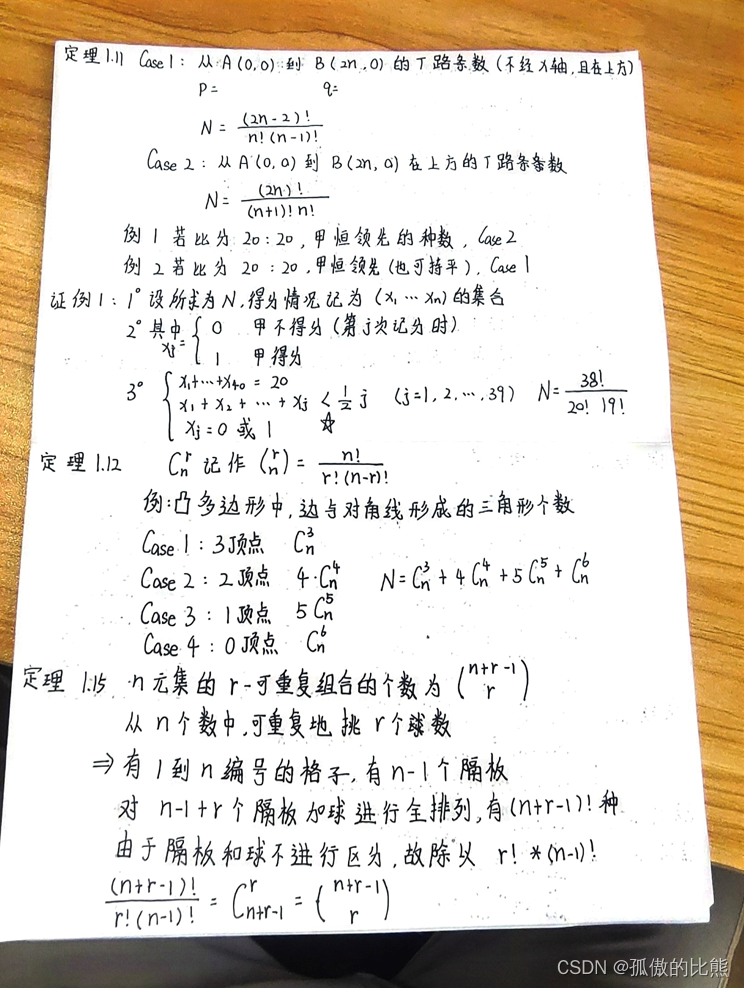 定理1.11 Case 1: 从A(0,0)到B(2n,0)的T路条数(不经X轴,且在上方)
P= q=
N= (2n-2)! / n!(n-1)!
Case 2: 从A(0,0)到B(2n,0)在上方的T路条条数
N= (2n)! / (n+1)!n!
例1 若比分20:20,甲恒领先的种数,Case2
例2 若比分20:20,甲恒领先(也可持平),Case1
证例1: 1° 设所求为N,得分情况记为(x₁…xn)的集合
2° 其中 xj= { 0 甲不得分(第j次记分时)
1 甲得分
3° { x₁+…+x₄₀=20
x₁+x₂+…+xj < 1/2 j (j=1,2,…,39) N= 38! / 20! 19!
xj=0或1 ☆
定理1.12 Cₙʳ 记作 (r n) = n! / r!(n-r)!
例:凸多边形中,边与对角线形成的三角形个数
Case 1: 3顶点 Cₙ³
Case 2: 2顶点 4·Cₙ⁴ N=Cₙ³+4Cₙ⁴+5Cₙ⁵+Cₙ⁶
Case 3: 1顶点 5Cₙ⁵
Case 4: 0顶点 Cₙ⁶
定理1.15 n元集的r-可重复组合的个数为 (n+r-1 r)
从n个数中,可重复地挑r个球数
⇒有1到n编号的格子,有n-1个隔板
对n-1+r个隔板加球进行全排列,有(n+r-1)!种
由于隔板和球不进行区分,故除以 r!*(n-1)!
(n+r-1)! / r!(n-1)! = C n+r-1 r = (n+r-1 r)
CSDN @孤傲的比熊